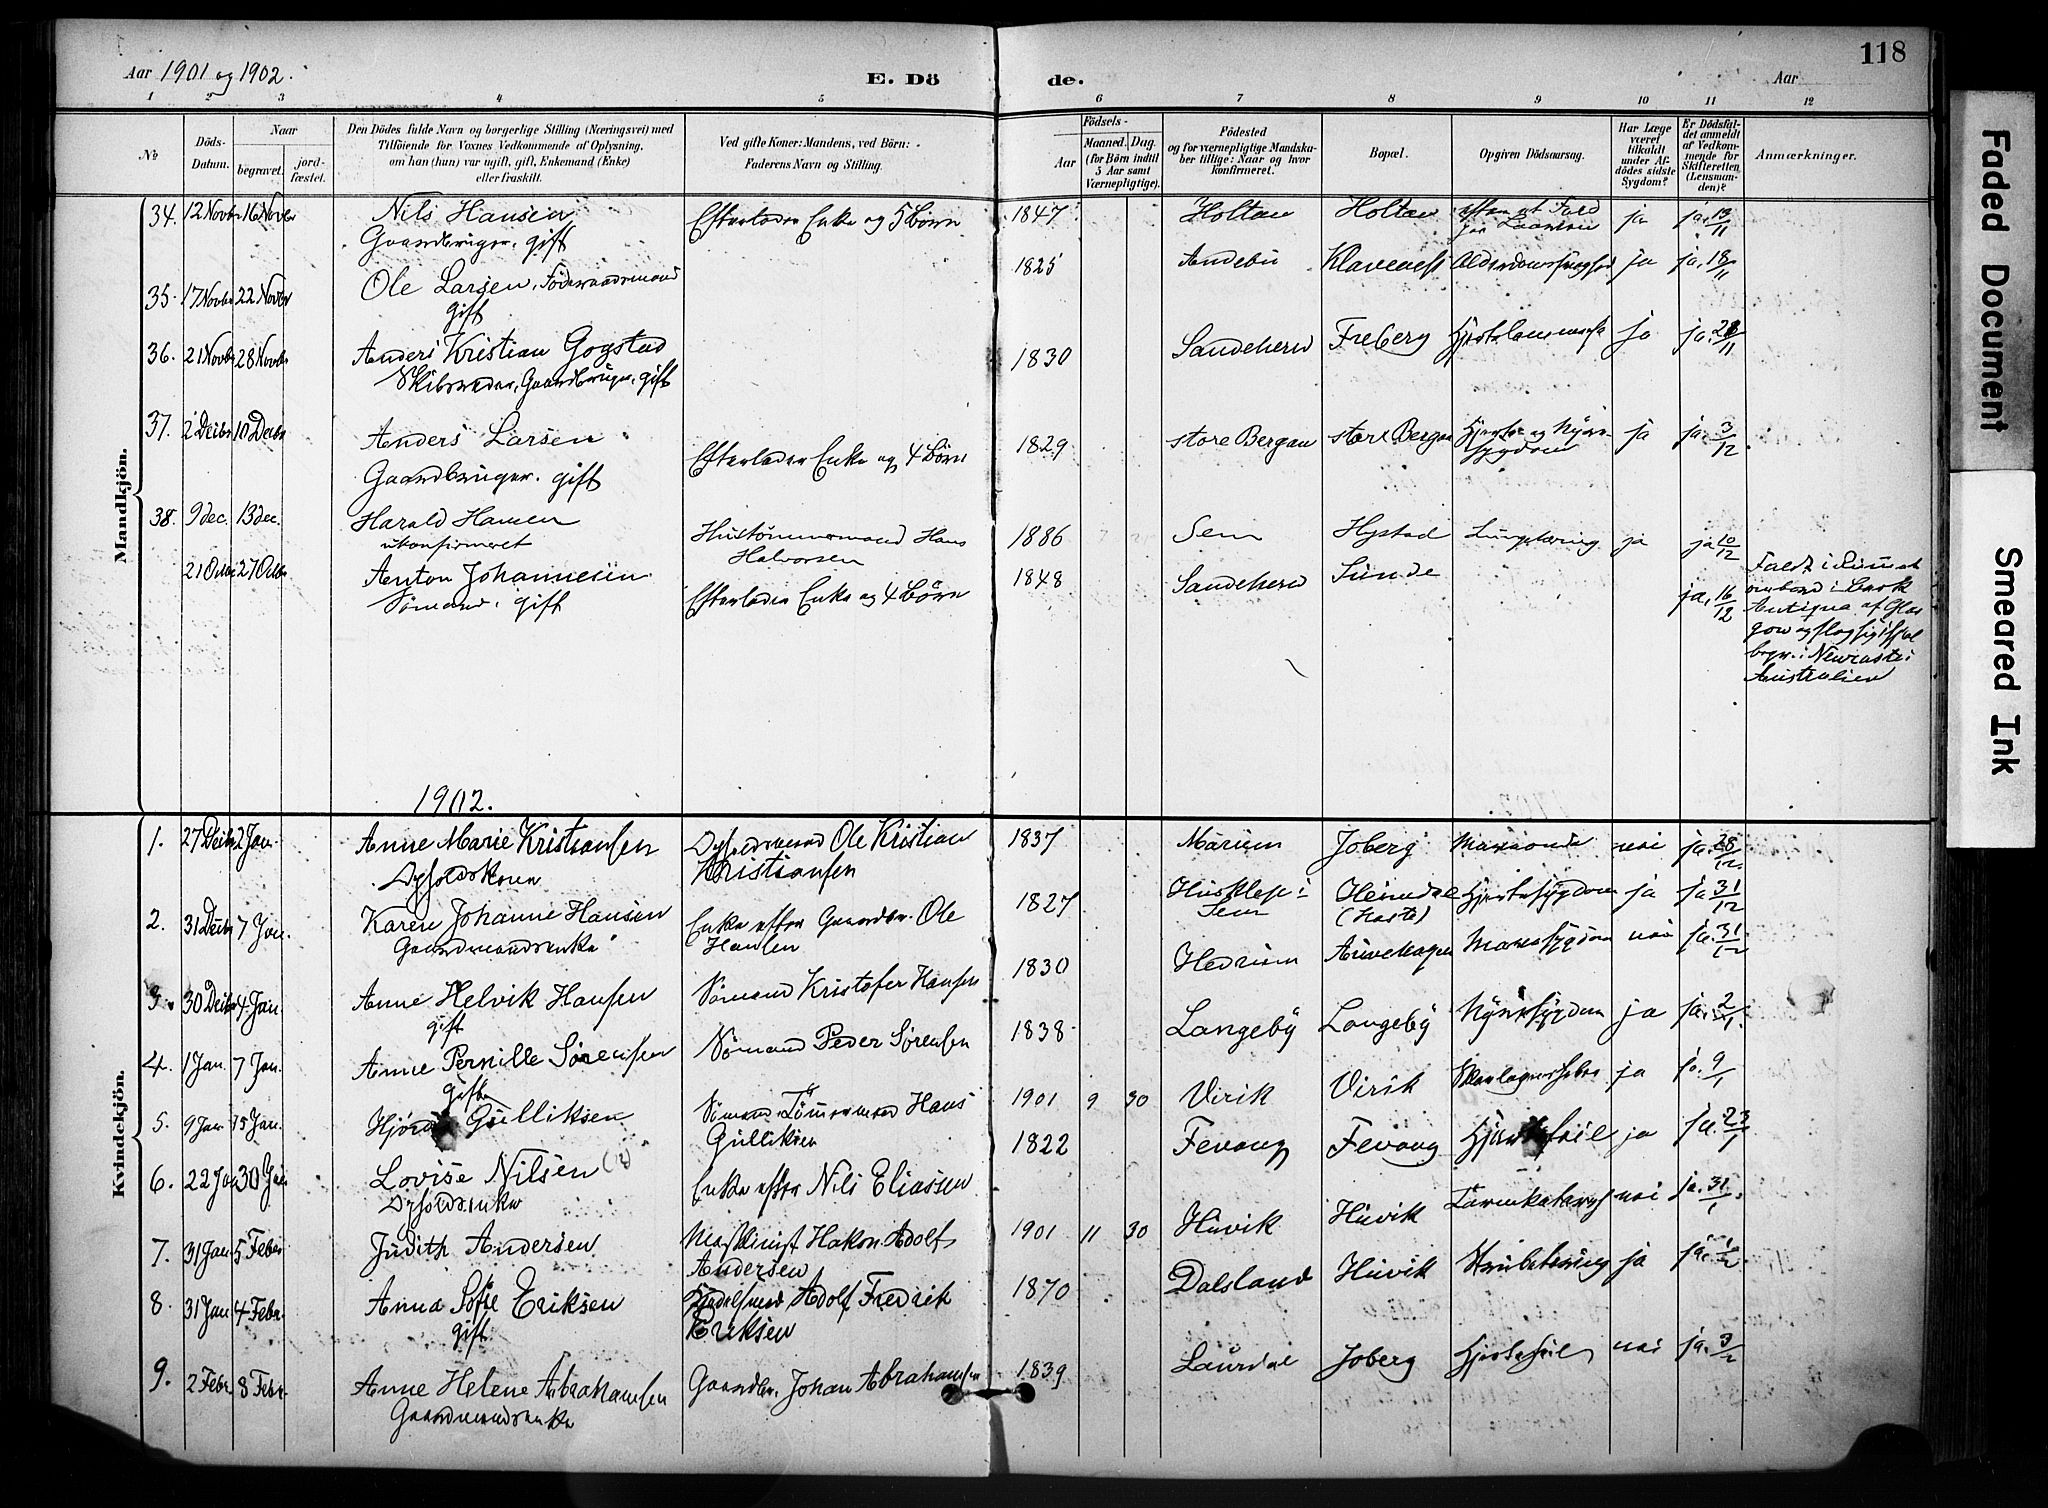 118
Aar 1901 og 1902.
E. Dö de.
Aar
1 2 3 4 5 6 7 8 9 10 11 12
No.
Döds-Datum.
Naar begravet.
jord-fæstet.
Den Dödes fulde Navn og borgerlige Stilling (Næringsvei) med
Tilföiende for Voxnes Vedkommende af Oplysning,
om han (hun) var ugift, gift, Enkemand (Enke)
eller fraskilt.
Ved gifte Koner: Mandens, ved Börn:
Faderens Navn og Stilling.
Födsels-
Aar
Maaned. Dag.
(for Börn indtil
5 Aar samt
Værnepligtige).
Födested
og for værnepligtige Mandska-
ber tillige: Naar og hvor
konfirmeret.
Bopæl.
Opgiven Dödsaarsag.
Har Læge
været
tilkaldt
under Af-
dödes sidste
Sygdom?
Er Dödsfal-
det anmeldt
af Vedkom-
mende for
Skifteretten
(Lensman-
den)?
Anmærkninger.
Mandkjön.
34. 12 Novbr 16 Novbr Nils Hansen Efterlader Enke og 5 Börn 1847 Holtan Holtan ja ja. 13/11
Gaardbruger. gift
35. 17 Novbr 22 Novbr Ole Larsen, Föderaadsmand 1825 Andebu Klaveness ja ja. 18/11
gift
36. 21 Novbr 28 Novbr Anders Kristian Gogstad 1830 Sandeherd Freberg ja ja.
Skibsreder, Gaardbruger. gift
37. 2 Decbr 10 Decbr Anders Larsen Efterlader Enke og 4 Börn 1829 store Bergan store Bergan Hjerte og Nyre-sygdom ja ja 3/12
Gaardbruger. gift
38. 9 dec. 13 dec. Harald Hansen Hustömmermand Hans Halvorsen 1886 Sem Hystad Lungetæring ja ja 10/12
ukonfirmeret
Anton Johannesen Efterlader Enke og 4 Börn 1848 Sandeherd Sunde ja, 16/12
Sömand. gift
ombord i Bark
Antiqua af Glas-
gow og
begr. i Newcastle i
Australien
1902.
Kvindekjön.
1. 27 Decbr 2 Jan. Anne Marie Kristiansen Oysidsmand Ole Kristian Kristiansen 1837 Marum Joberg nei ja. 28/12
2. 31 Decbr 7 Jan. Karen Johanne Hansen Enke efter Gaardbr. Ole Hansen 1827 Huskleps i Sem Heimdal Hjertesygdom ja ja 31/12
Gaardmandsenke
3. 30 Decbr 4 Jan. Anne Helvik Hansen Sömand Kristofer Hansen 1830 Hedrum Mavesygdom nei ja. 31/12
gift
4. 1 Jan. 7 Jan. Anne Pernille Sörensen Sömand Peder Sörensen 1838 Langeby Langeby Nyresygdom ja ja. 2/1.
gift
5. 9 Jan 15 Jan. Gulliksen Sömand, Tömmermand Hans Gulliksen 1901 9 30 Virik Virik ja ja. 9/1
6. 22 Jan 30 Jan Lovise Nilsen Enke efter Nils Eliassen 1822 Fevang Fevang Hjertefeil ja ja. 23/1
7. 31 Jan 5 Febr Judith Andersen Maskinist Hakon Adolf Andersen 1901 11 30 Huvik Huvik Tarmkatarrh nei ja. 31/1
8. 31 Jan 4 Febr. Anna Sofie Eriksen Adolf Fredrik Eriksen 1870 Dalsland Huvik Strubetæring ja ja. 1/2
gift
9. 2 Febr. 8 Febr. Anne Helene Abrahamsen Gaardbr. Johan Abrahamsen 1839 Laurdal Joberg Hjertefeil nei ja. 3/2
Gaardmandsenke
Faded Document
Smeared Ink